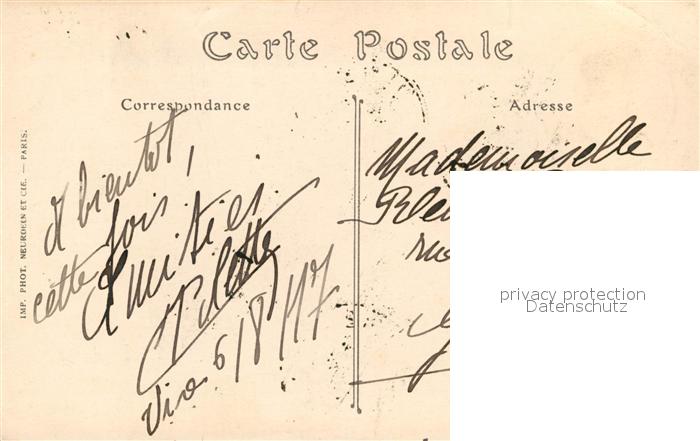 Carte Postale
Correspondance
Adresse
IMP. PHOT. NEURDEIN ET CIE. — PARIS.
A bientot
cette fois,
Amitiés
6/8/17
Mademoiselle
privacy protection
Datenschutz